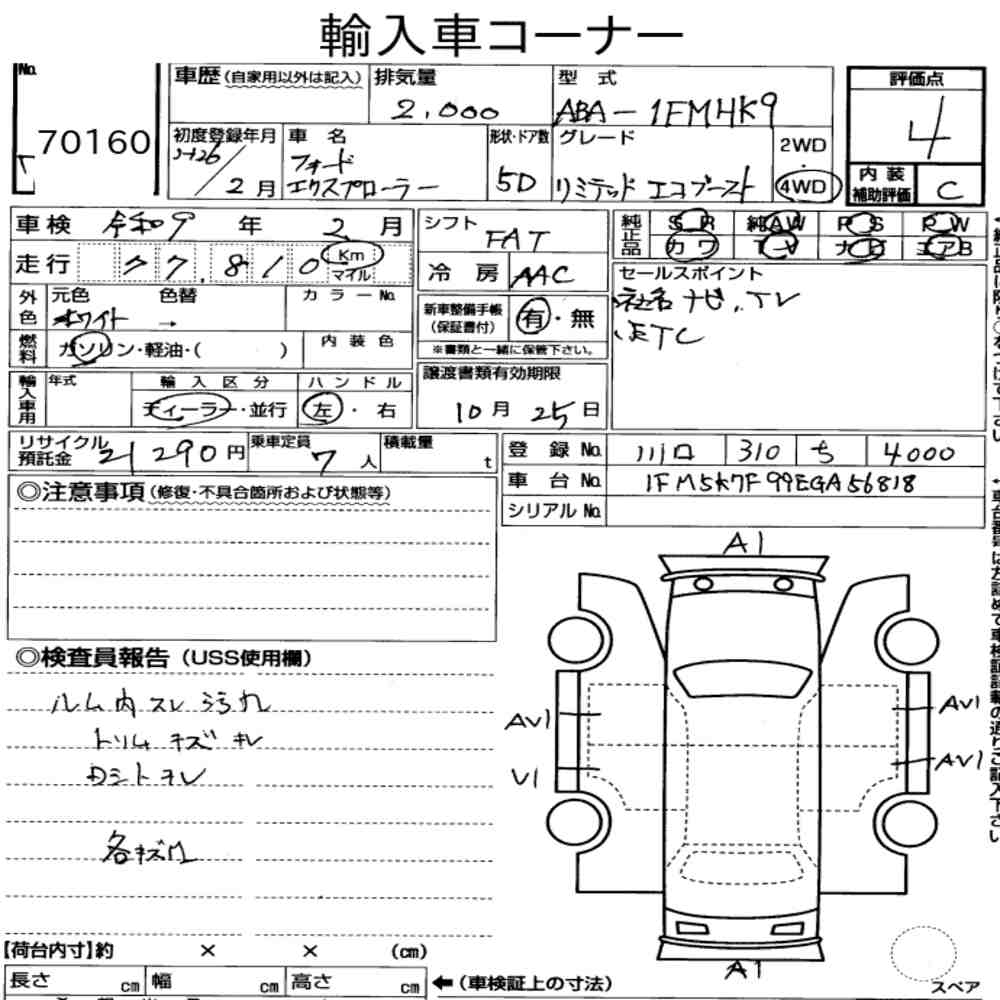 輸入車コーナー
No. 70160
車歴(自家用以外は記入) 排気量 2,000 型式 ABA-1FMHK9 評価点 4
初度登録年月 H26/2月 車名 フォード エクスプローラー 形状・ドア数 5D グレード リミテッド エコブースト 2WD・4WD 内装補助評価 C
車検 令和9年2月 シフト FAT 純正品 SR 純AW PS PW
カワ TV ナビ エアB
走行 77,810 Km マイル 冷房 AAC セールスポイント
ナビ,TV
ETC
外色 元色 ホワイト 色替 → カラーNo. 新車整備手帳(保証書付) 有・無
※書類と一緒に保管下さい。
燃料 ガソリン・軽油・( ) 内装色
譲渡書類有効期限 10月25日
輸入車用 年式 輸入区分 ディーラー・並行 ハンドル 左・右
リサイクル預託金 21290円 乗車定員 7人 積載量 t 登録No. 川口 310 ち 4000
車台No. 1FM5K7F99EGA56818
シリアルNo.
◎注意事項(修復・不具合箇所および状態等)
◎検査員報告(USS使用欄)
ルーム内スレ 汚れ
トリム キズ キレ
シト キレ
各キズ
A1
AV1 AV1
V1 AV1
A1
【荷台内寸】約 × × (cm)
長さ cm 幅 cm 高さ cm ←(車検証上の寸法)
スペア